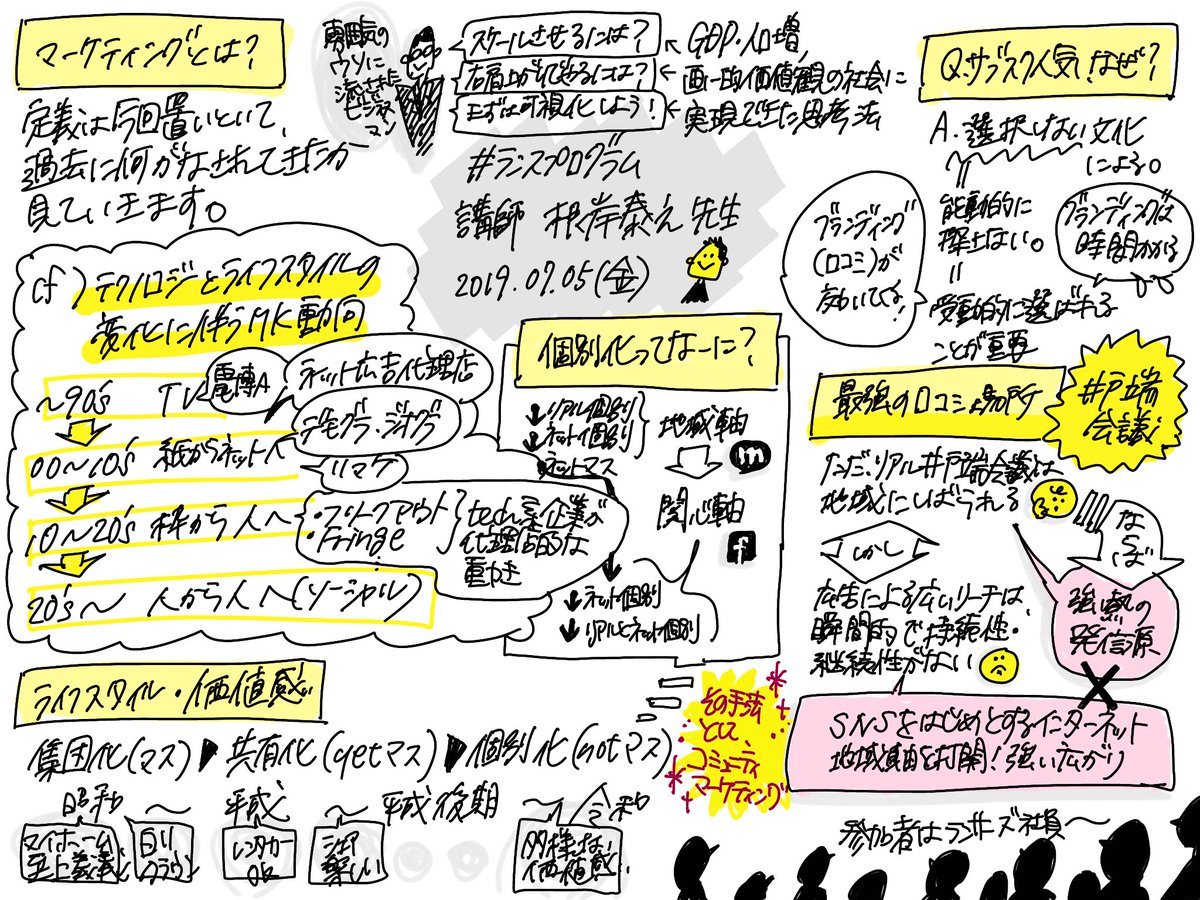 マーケティングとは?
定義は今回置いといて、
過去に何がなされてきたか
見ていきます。
雰囲気の
ウソに
流された
ビジネス
マン
スケールさせるには?
右肩上がりにするには?
まずは可視化しよう!
GDP・人口増、
画一的価値観の社会に
実現できた思考法
#ランスプログラム
講師 根岸泰之 先生
2019.07.05(金)
Q.サブスク人気!なぜ?
A.選択しない文化
による。
能動的に
探さない。
=
受動的に選ばれる
ことが重要
ブランディング
(口コミ)が
効いてくる!
ブランディングは
時間かかる
cf)テクノロジーとライフスタイルの
変化に伴うMK動向
〜90's TV
電博A
ネット広告代理店
00〜10's 紙からネットへ
デモグラ・ジオグラ
リマケ
10〜20's 枠から人へ
・フリークアウト
・Fringe
tech系企業が
代理店的な
動き
20's〜 人から人へ(ソーシャル)
個別化ってなーに?
↓リアル個別
↓ネット個別
ネットマス
地域軸
m
関心軸
f
↓ネット個別
↓リアルとネット個別
最強の口コミ場所
井戸端
会議
ただ、リアル井戸端会議は
地域にしばられる
しかし
ならば
広告による広いリーチは、
瞬間的で持続性・
継続性がない
強い熱の
発信源
×
SNSをはじめとするインターネット
地域軸を打開!強い広がり
ライフスタイル・価値感
集団化(マス)▶共有化(yetマス)▶個別化(notマス)
昭和 〜 平成 〜 平成後期 〜 令和
マイホーム
至上主義
白い
クラウン
レンタカー
OK
シェア
楽しい
多様な
価値感
その手法
として、
コミュニティ
マーケティング
参加者はランサーズ社員〜